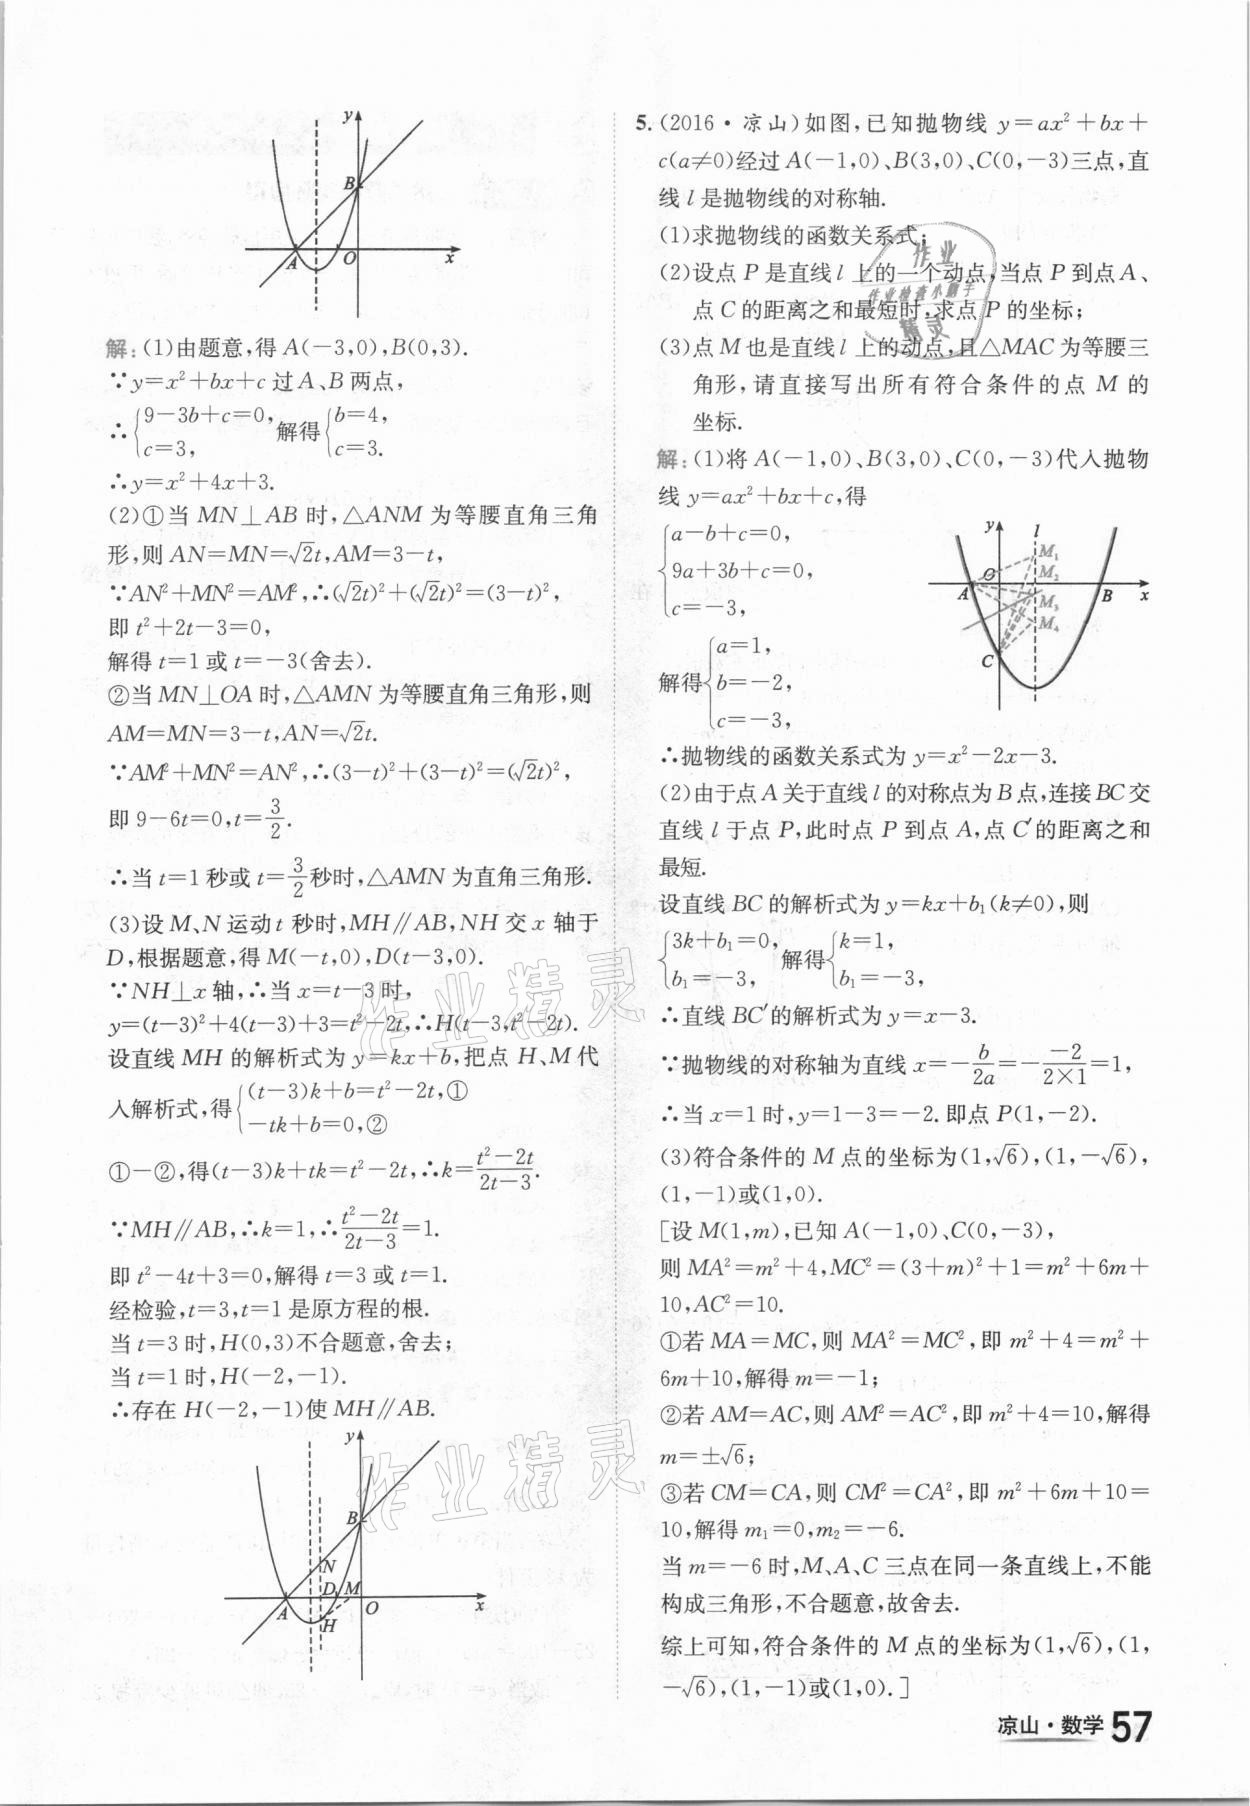 y
B
A
O
x
解:(1)由题意,得A(-3,0),B(0,3).
∵y=x²+bx+c过A、B两点,
∴{9-3b+c=0, c=3, 解得{b=4, c=3.
∴y=x²+4x+3.
(2)①当MN⊥AB时,△ANM为等腰直角三角
形,则AN=MN=√2t,AM=3-t,
∵AN²+MN²=AM²,∴(√2t)²+(√2t)²=(3-t)²,
即t²+2t-3=0,
解得t=1或t=-3(舍去).
②当MN⊥OA时,△AMN为等腰直角三角形,则
AM=MN=3-t,AN=√2t.
∵AM²+MN²=AN²,∴(3-t)²+(3-t)²=(√2t)²,
即9-6t=0,t=3/2.
∴当t=1秒或t=3/2秒时,△AMN为直角三角形.
(3)设M、N运动t秒时,MH∥AB,NH交x轴于
D,根据题意,得M(-t,0),D(t-3,0).
∵NH⊥x轴,∴当x=t-3时,
y=(t-3)²+4(t-3)+3=t²-2t,∴H(t-3,t²-2t).
设直线MH的解析式为y=kx+b,把点H、M代
入解析式,得{(t-3)k+b=t²-2t,① -tk+b=0,②
①-②,得(t-3)k+tk=t²-2t,∴k=(t²-2t)/(2t-3).
∵MH∥AB,∴k=1,∴(t²-2t)/(2t-3)=1.
即t²-4t+3=0,解得t=3或t=1.
经检验,t=3,t=1是原方程的根.
当t=3时,H(0,3)不合题意,舍去;
当t=1时,H(-2,-1).
∴存在H(-2,-1)使MH∥AB.
y
B
N
D
M
A
H
O
x
5.(2016·凉山)如图,已知抛物线y=ax²+bx+
c(a≠0)经过A(-1,0)、B(3,0)、C(0,-3)三点,直
线l是抛物线的对称轴.
(1)求抛物线的函数关系式;
(2)设点P是直线l上的一个动点,当点P到点A、
点C的距离之和最短时,求点P的坐标;
(3)点M也是直线l上的动点,且△MAC为等腰三
角形,请直接写出所有符合条件的点M的
坐标.
解:(1)将A(-1,0)、B(3,0)、C(0,-3)代入抛物
线y=ax²+bx+c,得
{a-b+c=0,
9a+3b+c=0,
c=-3,
y
l
M₁
O
M₂
A
M₃
B
x
M₄
C
解得{a=1,
b=-2,
c=-3,
∴抛物线的函数关系式为y=x²-2x-3.
(2)由于点A关于直线l的对称点为B点,连接BC交
直线l于点P,此时点P到点A,点C′的距离之和
最短.
设直线BC的解析式为y=kx+b₁(k≠0),则
{3k+b₁=0, b₁=-3, 解得{k=1, b₁=-3,
∴直线BC′的解析式为y=x-3.
∵抛物线的对称轴为直线x=-b/2a=-(-2)/(2×1)=1,
∴当x=1时,y=1-3=-2.即点P(1,-2).
(3)符合条件的M点的坐标为(1,√6),(1,-√6),
(1,-1)或(1,0).
[设M(1,m),已知A(-1,0)、C(0,-3),
则MA²=m²+4,MC²=(3+m)²+1=m²+6m+
10,AC²=10.
①若MA=MC,则MA²=MC²,即m²+4=m²+
6m+10,解得m=-1;
②若AM=AC,则AM²=AC²,即m²+4=10,解得
m=±√6;
③若CM=CA,则CM²=CA²,即m²+6m+10=
10,解得m₁=0,m₂=-6.
当m=-6时,M、A、C三点在同一条直线上,不能
构成三角形,不合题意,故舍去.
综上可知,符合条件的M点的坐标为(1,√6),(1,
-√6),(1,-1)或(1,0).]
作业
作业检查小助手
精灵
作业精灵
作业精灵
凉山·数学 57